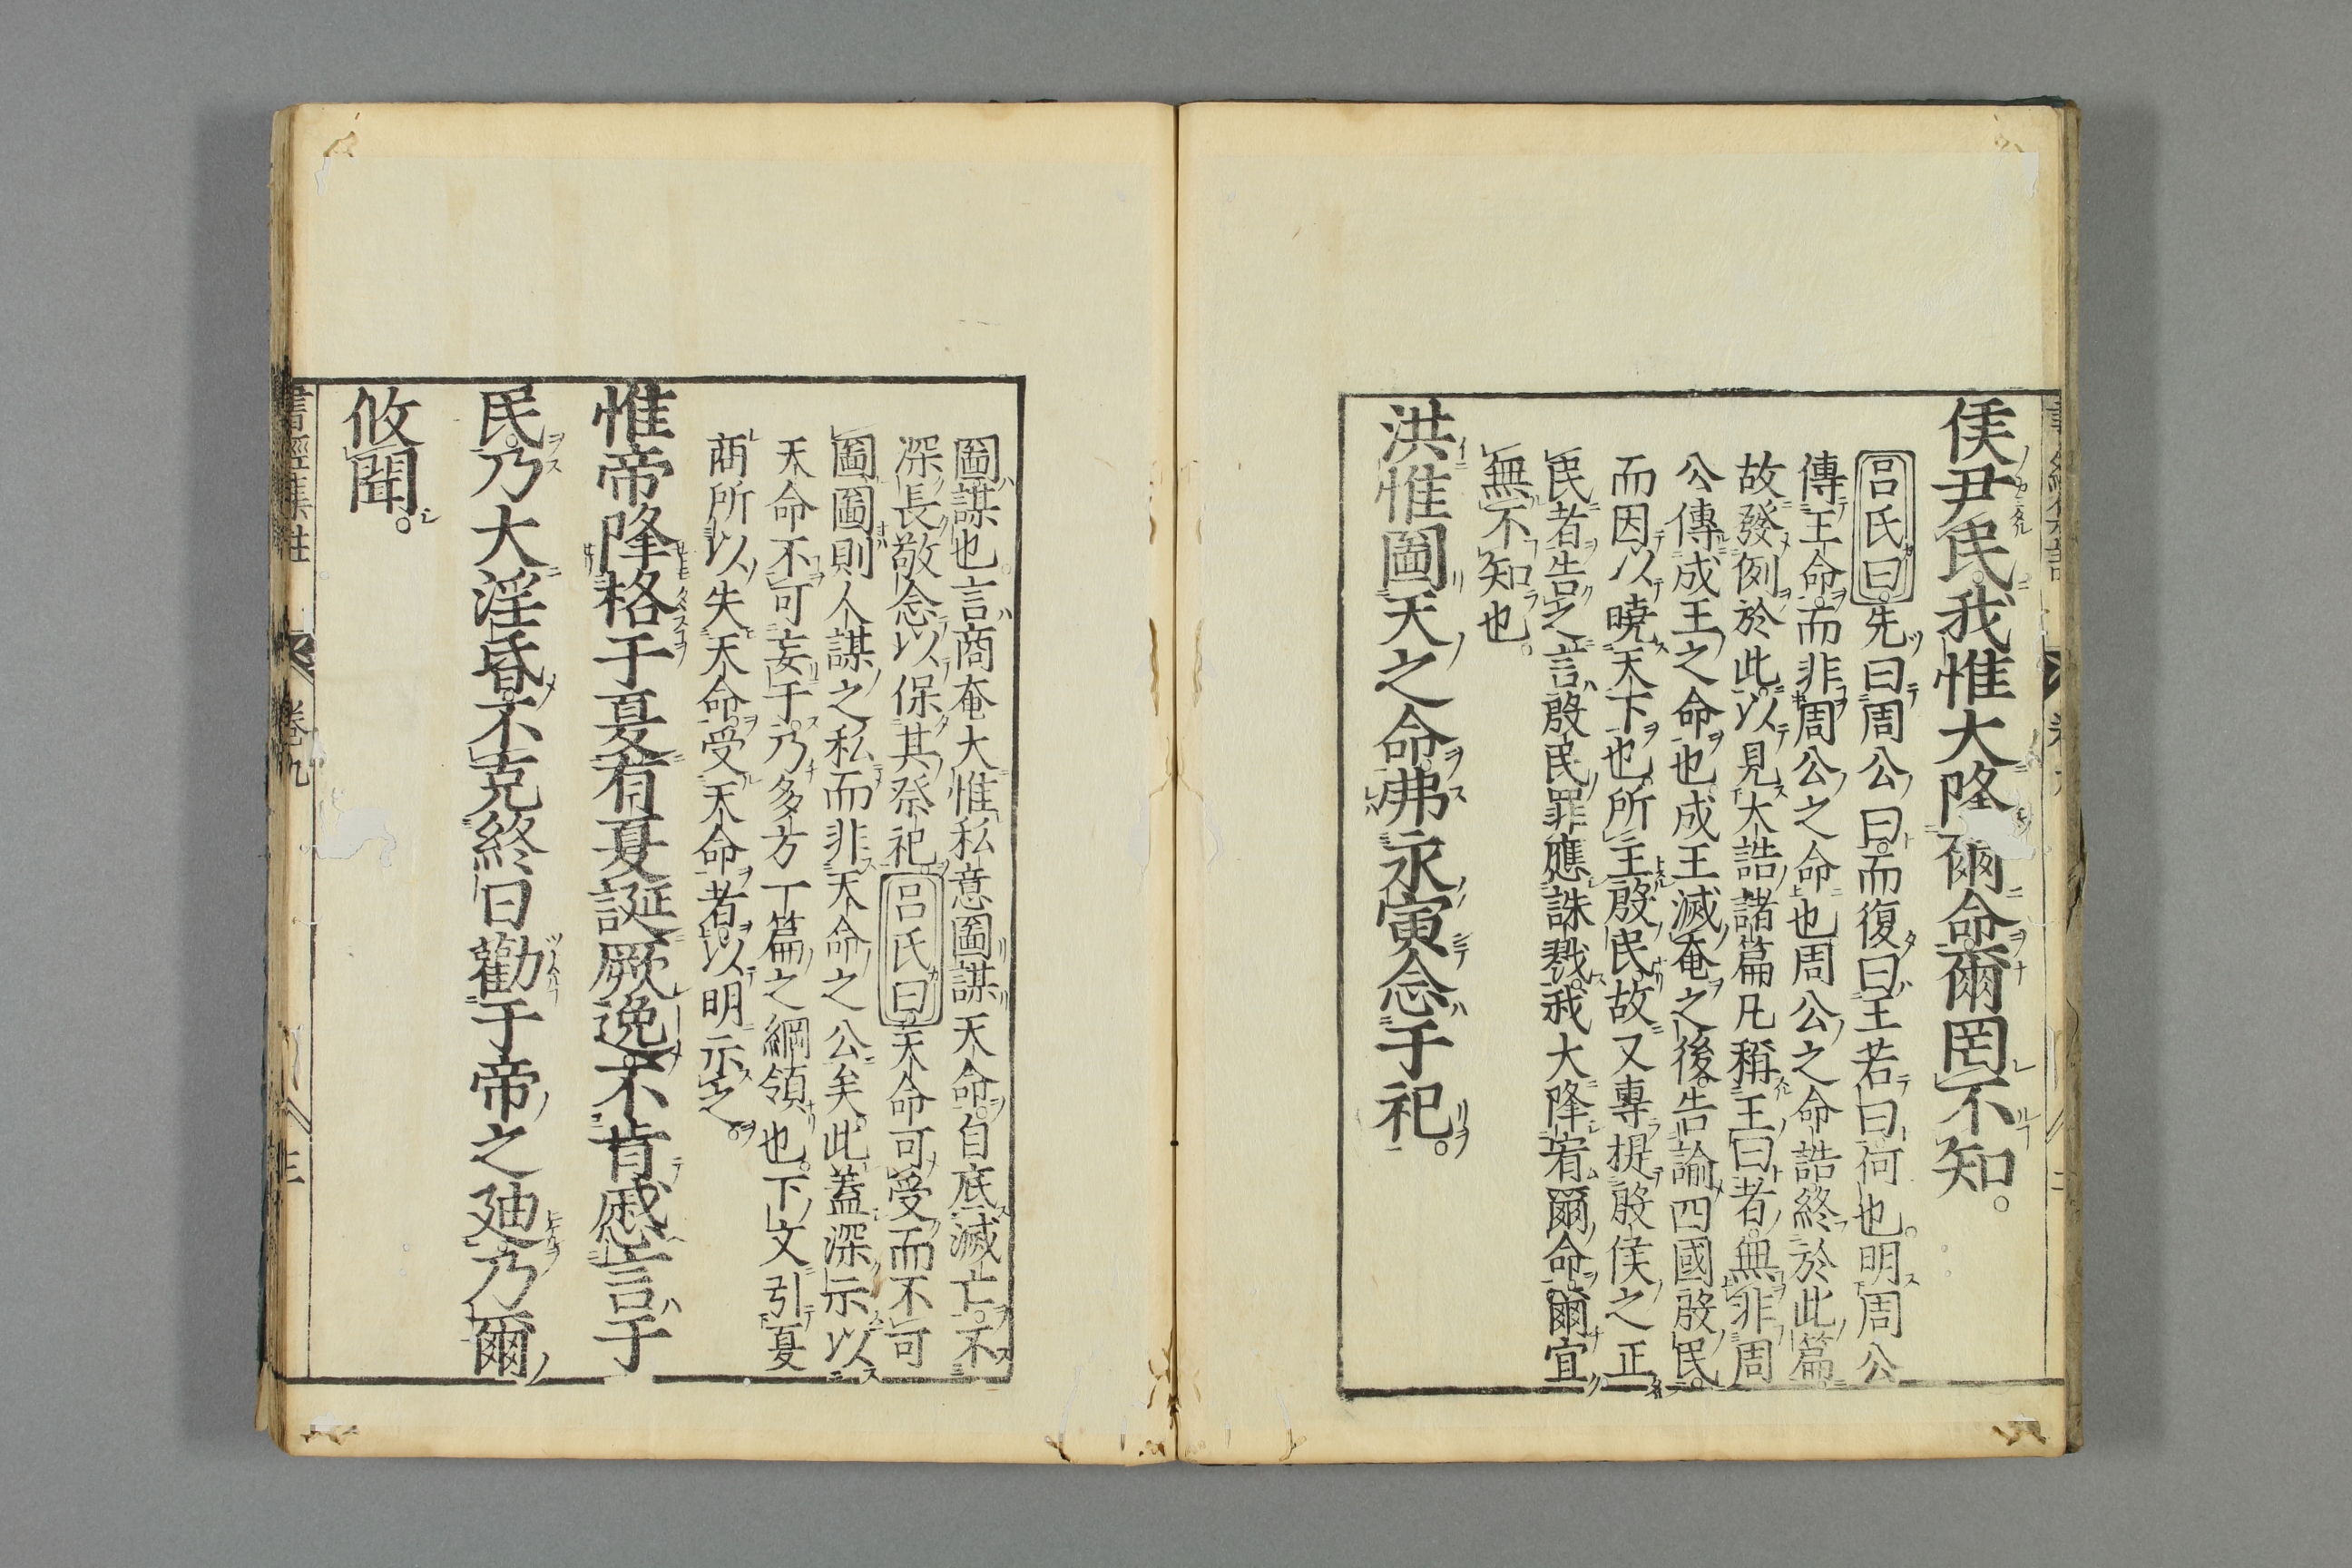 侯尹民。我惟大降爾命。爾罔不知。
呂氏曰。先曰周公曰。而復曰王若曰何也。明周公
傳王命。而非周公之命也周公之命誥終於此篇。
故發例於此。以見大誥諸篇凡稱王曰者。無非周
公傳成王之命也。成王滅奄之後。告諭四國殷民。
而因以曉天下也。所主殷民。故又專提殷侯之正
民者告之。言殷民罪應誅戮。我大降宥爾命。爾宜
無不知也。
洪惟圖天之命。弗永寅念于祀。
圖謀也。言商奄大惟私意圖謀天命。自底滅亡。不
深長敬念以保其祭祀。呂氏曰天命可受而不可
圖圖則人謀之私而非天命之公矣。此蓋深示以
天命不可妄干。乃多方一篇之綱領也。下文引夏
商所以失天命。受天命者。以明示之。
惟帝降格于夏。有夏誕厥逸。不肯慼言于
民。乃大淫昏。不克終日勸于帝之迪。乃爾
攸聞。
書經集註
卷九
三